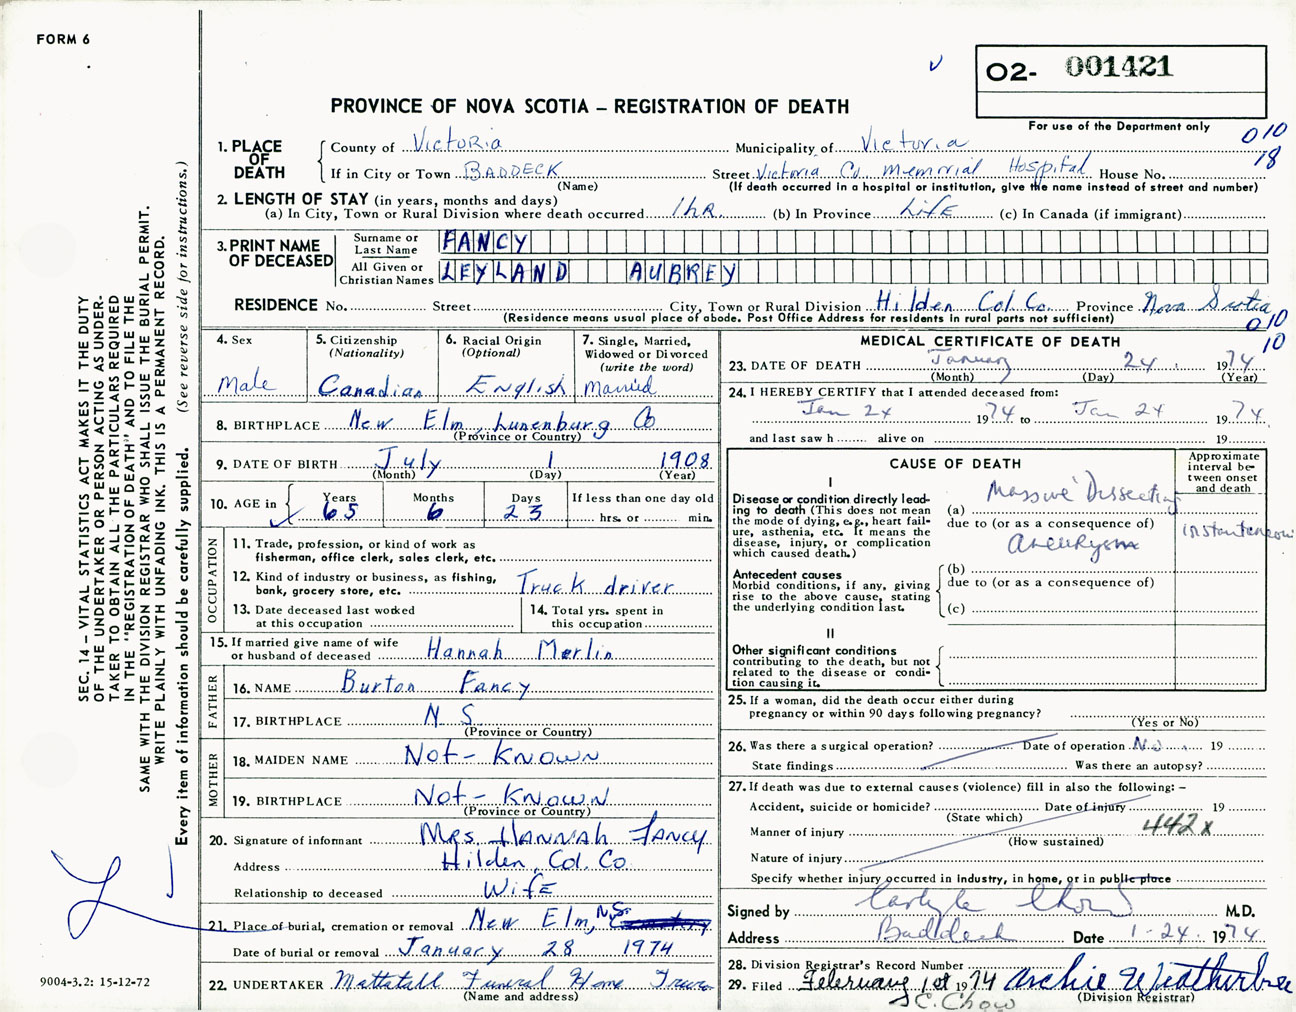 FORM 6
O2- 001421
PROVINCE OF NOVA SCOTIA – REGISTRATION OF DEATH
For use of the Department only
010
18
1. PLACE OF DEATH
County of Victoria Municipality of Victoria
If in City or Town BADDECK Street Victoria Co. Memorial Hospital House No.
(Name) (If death occurred in a hospital or institution, give the name instead of street and number)
2. LENGTH OF STAY (in years, months and days)
(a) In City, Town or Rural Division where death occurred 1 hR. (b) In Province LifE (c) In Canada (if immigrant)
3. PRINT NAME OF DECEASED
Surname or Last Name FANCY
All Given or Christian Names LEYLAND AUBREY
RESIDENCE No. Street City, Town or Rural Division Hilden Col. Co. Province Nova Scotia
(Residence means usual place of abode. Post Office Address for residents in rural parts not sufficient)
010
10
4. Sex
Male
5. Citizenship
(Nationality)
Canadian
6. Racial Origin
(Optional)
English
7. Single, Married, Widowed or Divorced
(write the word)
Married
8. BIRTHPLACE New Elm, Lunenburg Co
(Province or Country)
9. DATE OF BIRTH July 1 1908
(Month) (Day) (Year)
10. AGE in Years 65 Months 6 Days 23
If less than one day old
hrs. or min.
OCCUPATION
11. Trade, profession, or kind of work as fisherman, office clerk, sales clerk, etc.
12. Kind of industry or business, as fishing, bank, grocery store, etc. Truck driver
13. Date deceased last worked at this occupation
14. Total yrs. spent in this occupation
15. If married give name of wife or husband of deceased Hannah Merlin
FATHER
16. NAME Burton Fancy
17. BIRTHPLACE N S
(Province or Country)
MOTHER
18. MAIDEN NAME Not - Known
19. BIRTHPLACE Not - Known
(Province or Country)
20. Signature of informant Mrs. HANNAH FANCY
Address Hilden, Col. Co.
Relationship to deceased WifE
21. Place of burial, cremation or removal New Elm, N.S.
Date of burial or removal January 28 1974
22. UNDERTAKER Mattatall Funeral Home Truro
(Name and address)
MEDICAL CERTIFICATE OF DEATH
23. DATE OF DEATH January 24 1974
(Month) (Day) (Year)
24. I HEREBY CERTIFY that I attended deceased from:
Jan 24 1974 to Jan 24 1974.
and last saw h alive on 19
CAUSE OF DEATH
Approximate interval between onset and death
I
Disease or condition directly leading to death (This does not mean the mode of dying, e.g., heart failure, asthenia, etc. It means the disease, injury, or complication which caused death.)
(a) Massive Dissecting
due to (or as a consequence of)
Aneurysm
instantaneous
Antecedent causes
Morbid conditions, if any, giving rise to the above cause, stating the underlying condition last.
(b)
due to (or as a consequence of)
(c)
II
Other significant conditions
contributing to the death, but not related to the disease or condition causing it.
25. If a woman, did the death occur either during pregnancy or within 90 days following pregnancy?
(Yes or No)
26. Was there a surgical operation? Date of operation No 19
State findings Was there an autopsy?
27. If death was due to external causes (violence) fill in also the following: –
Accident, suicide or homicide? Date of injury 19
(State which)
Manner of injury 442x
(How sustained)
Nature of injury
Specify whether injury occurred in industry, in home, or in public place
Signed by Carlyle Chow M.D.
Address Baddeck Date 1-24. 1974
28. Division Registrar's Record Number
29. Filed February 1st 1974 Archie Weatherbee
(Division Registrar)
C. Chow
SEC. 14 – VITAL STATISTICS ACT MAKES IT THE DUTY
OF THE UNDERTAKER OR PERSON ACTING AS UNDER-
TAKER TO OBTAIN ALL THE PARTICULARS REQUIRED
IN THE "REGISTRATION OF DEATH" AND TO FILE THE
SAME WITH THE DIVISION REGISTRAR WHO SHALL ISSUE THE BURIAL PERMIT.
WRITE PLAINLY WITH UNFADING INK. THIS IS A PERMANENT RECORD.
Every item of information should be carefully supplied. (See reverse side for instructions.)
9004-3.2: 15-12-72